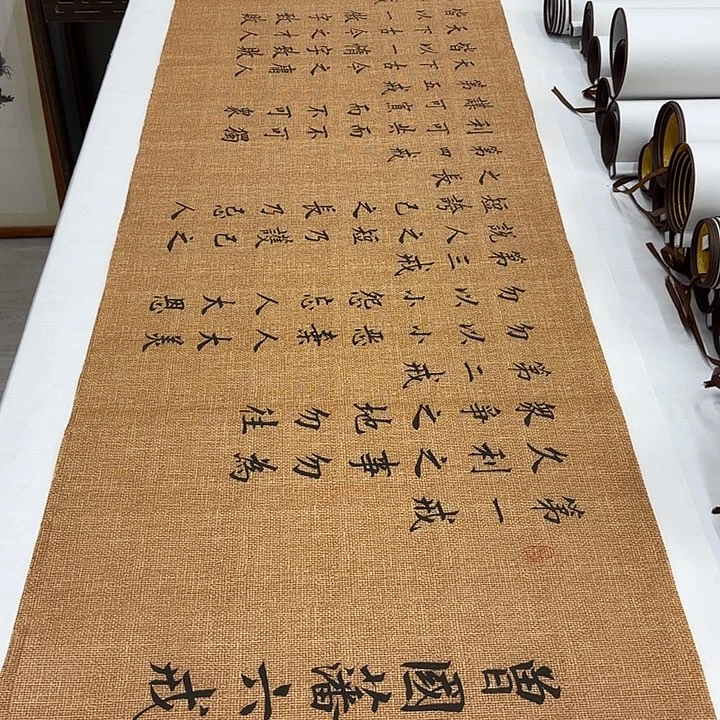 曾國藩六戒
第一戒
久利之事勿為
衆爭之地勿往
第二戒
勿以小惡棄人大美
勿以小怨忘人大恩
第三戒
說人之短乃護己之
短誇己之長乃忌人
之長
第四戒
利可共而不可獨
謀可寡而不可衆
第五戒
天下古今之庸人
皆以一惰字致敗
天下古今之才人
皆以一傲字致敗